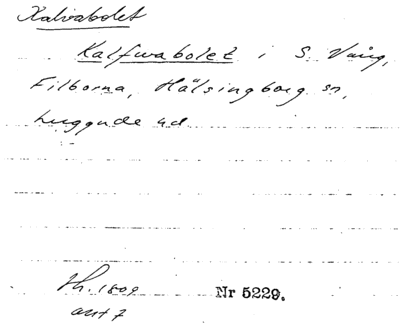 Kalvabolet
Kalfwabolet i S. Vång,
Filborna, Hälsingborg sn,
Luggude hd
Th. 1809 Nr 5229.
akt 7